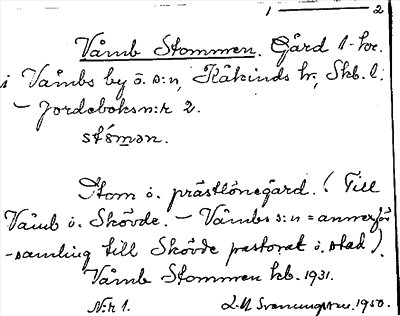 1 — 2
Våmb Stommen. Gård 1-hr.
i Våmbs by o. s:n, Kåkinds hr, Skb. l:
– Jordeboksn:r 2.
stómən.
Stom o. prästlönegård. (Till
Våmb o. Skövde. – Våmbs s:n = annexför
-samling till Skövde pastorat o. stad).
Våmb Stommen kb. 1931.
N:r 1.
1950.